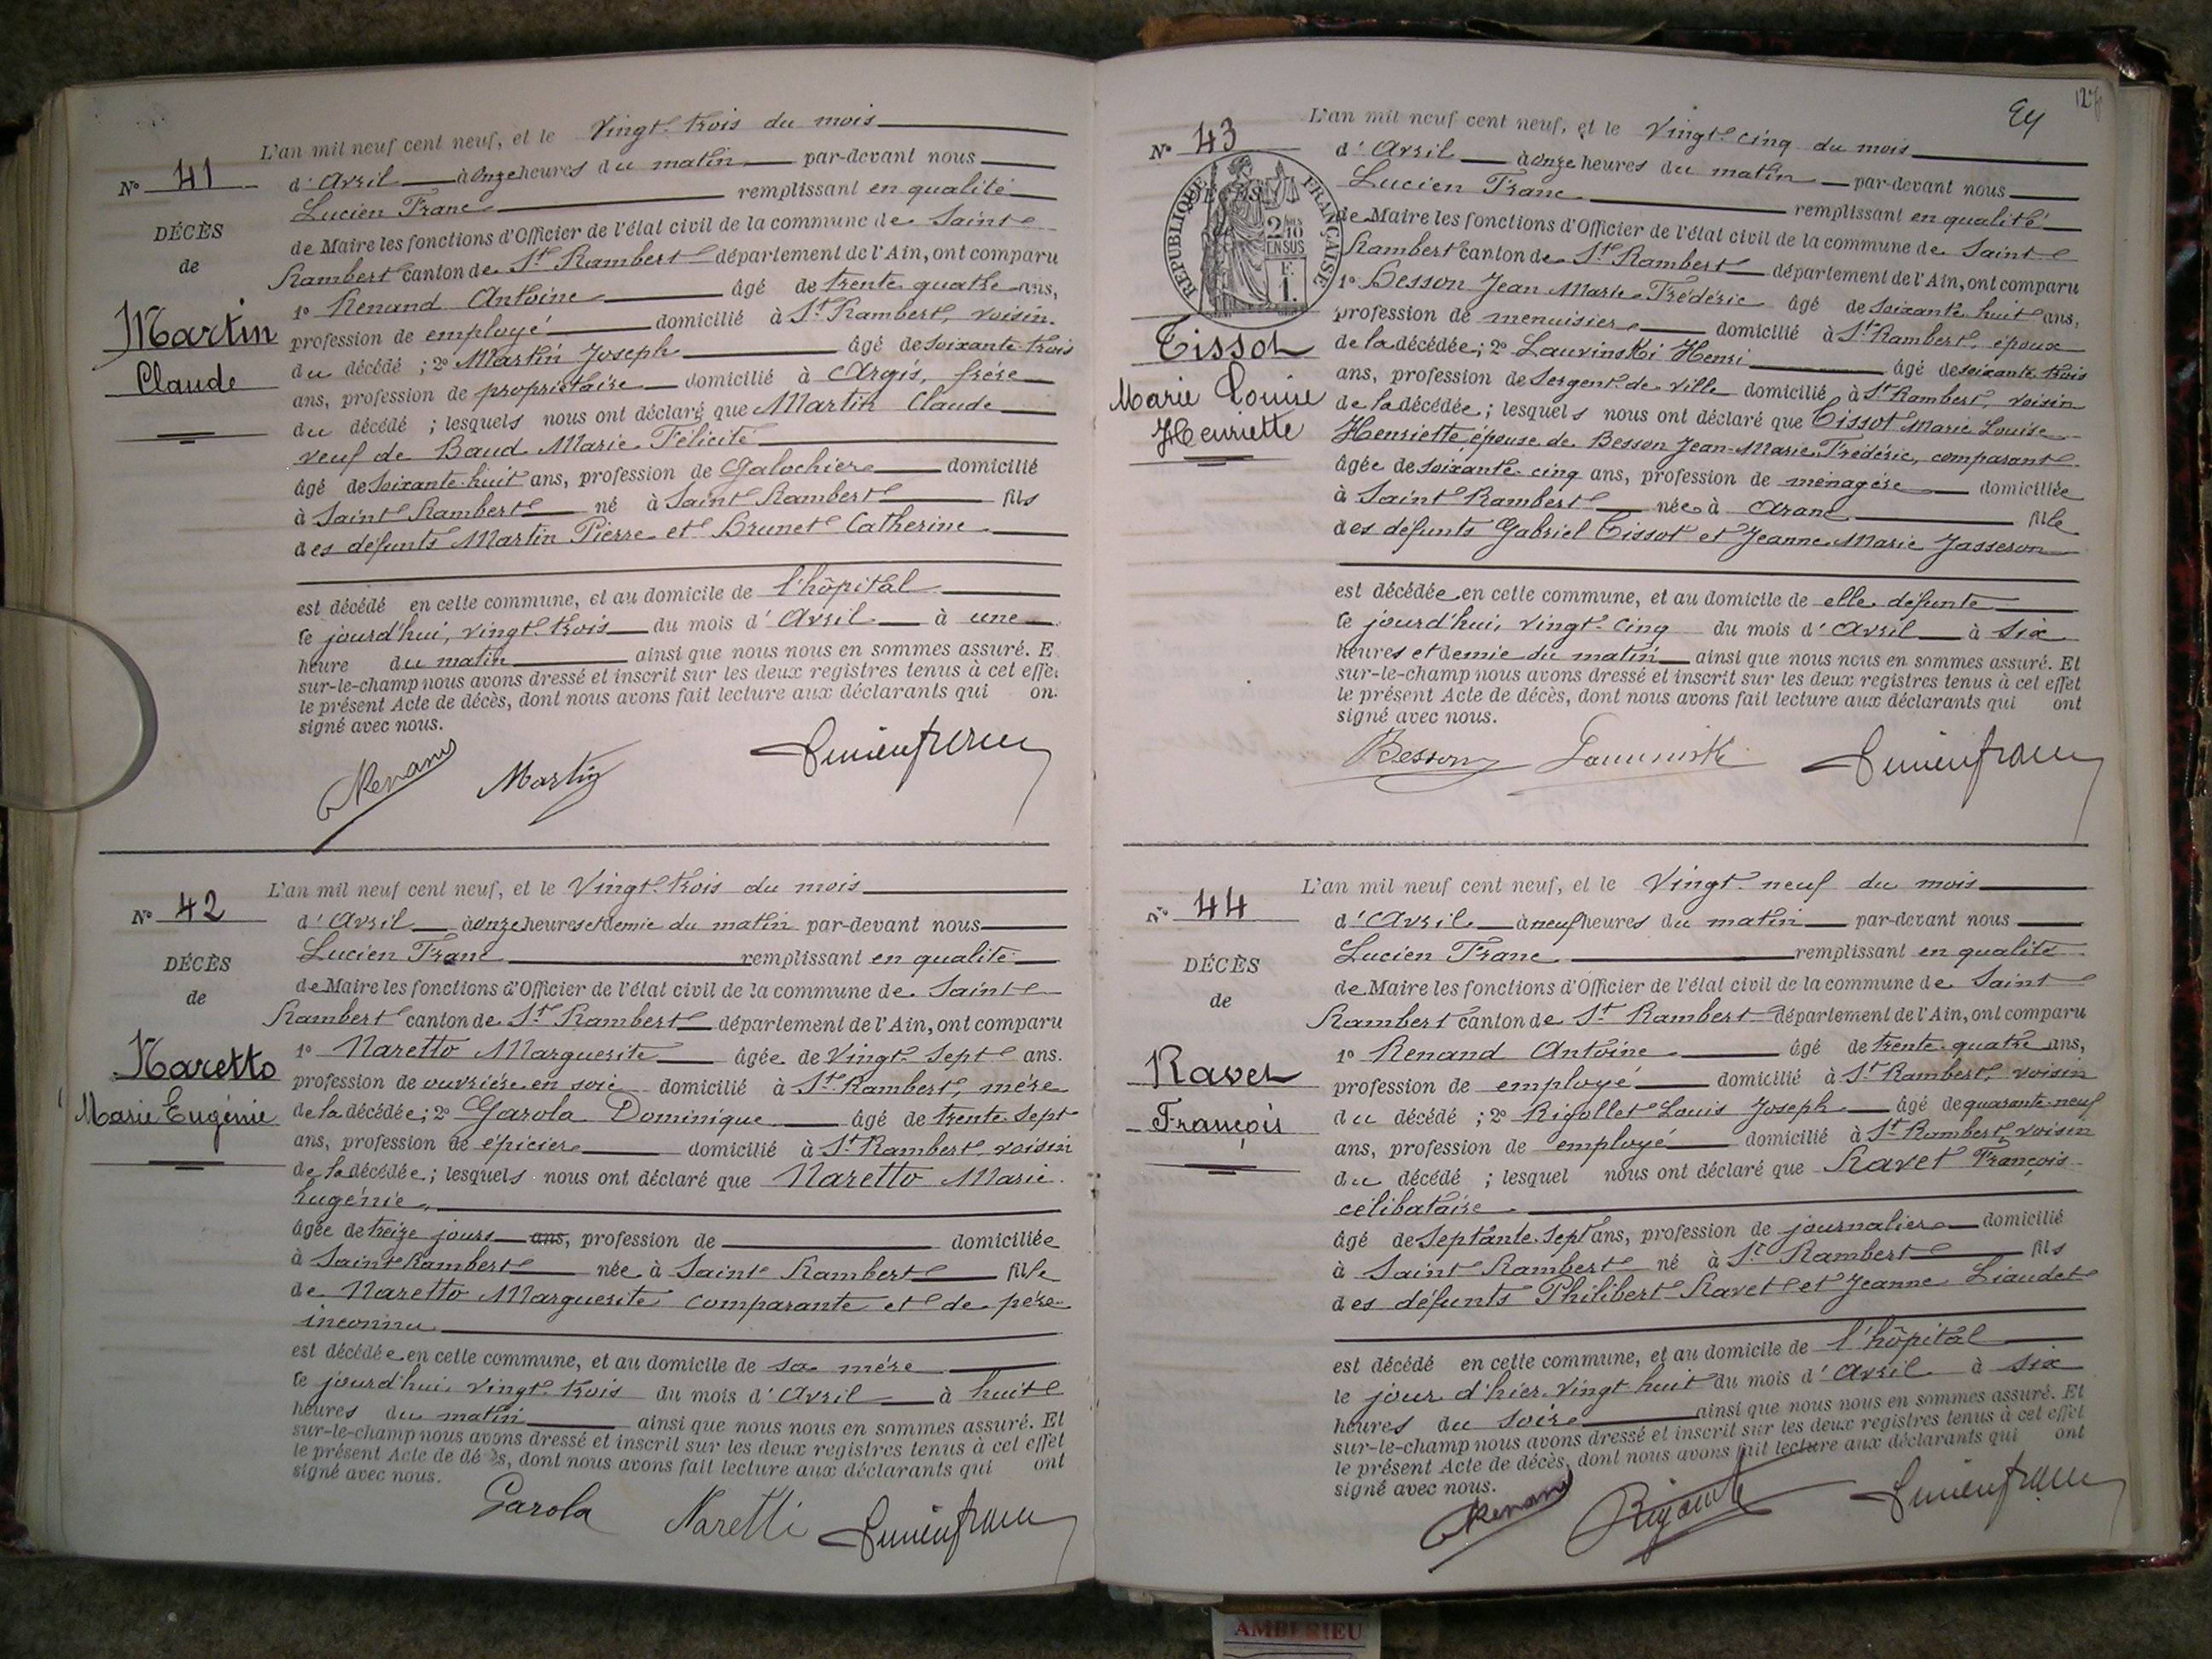 L'an mil neuf cent neuf, et le Vingt-trois du mois
N° 41
d'Avril à onze heures du matin par-devant nous
Lucien Franc remplissant en qualité
DÉCÈS
de Maire les fonctions d'Officier de l'état civil de la commune de Saint
de
Rambert canton de St Rambert département de l'Ain, ont comparu
1° Renand Antoine âgé de trente quatre ans,
Martin
profession de employé domicilié à St Rambert, voisin
du décédé ; 2° Martin Joseph âgé de soixante-trois
Claude
ans, profession de propriétaire domicilié à Argis, frère
du décédé ; lesquels nous ont déclaré que Martin Claude
veuf de Baud Marie Félicité
âgé de soixante-huit ans, profession de Galochier domicilié
à Saint Rambert né à Saint Rambert fils
des défunts Martin Pierre et Brunet Catherine
est décédé en cette commune, et au domicile de l'hôpital
ce jourd'hui, vingt-trois du mois d'Avril à une
heure du matin ainsi que nous nous en sommes assuré. E
sur-le-champ nous avons dressé et inscrit sur les deux registres tenus à cet effe
le présent Acte de décès, dont nous avons fait lecture aux déclarants qui on
signé avec nous.
Renand Martin Lucien Franc
L'an mil neuf cent neuf, et le Vingt-trois du mois
N° 42
d'Avril à onze heures et demie du matin par-devant nous
Lucien Franc remplissant en qualité
DÉCÈS
de Maire les fonctions d'Officier de l'état civil de la commune de Saint
de
Rambert canton de St Rambert département de l'Ain, ont comparu
1° Naretto Marguerite âgée de Vingt-sept ans.
Naretto
profession de ouvrière en soie domicilié à St Rambert, mère
Marie Eugénie
de la décédée ; 2° Garola Dominique âgé de trente-sept
ans, profession de épicier domicilié à St Rambert voisin
de la décédée ; lesquels nous ont déclaré que Naretto Marie
Eugénie
âgée de treize jours ans, profession de domiciliée
à Saint Rambert née à Saint Rambert fille
de Naretto Marguerite comparante et de père
inconnu
est décédée en cette commune, et au domicile de sa mère
ce jourd'hui vingt-trois du mois d'Avril à huit
heures du matin ainsi que nous nous en sommes assuré. Et
sur-le-champ nous avons dressé et inscrit sur les deux registres tenus à cet effet
le présent Acte de décès, dont nous avons fait lecture aux déclarants qui ont
signé avec nous.
Garola Naretti Lucien Franc
L'an mil neuf cent neuf, et le Vingt-cinq du mois
N° 43
d'Avril à onze heures du matin par-devant nous
RÉPUBLIQUE FRANÇAISE
2/10 EN SUS
F. 1.
Lucien Franc remplissant en qualité
de Maire les fonctions d'Officier de l'état civil de la commune de Saint
Rambert canton de St Rambert département de l'Ain, ont comparu
1° Besson Jean Marie Frédéric âgé de soixante huit ans,
profession de menuisier domicilié à St Rambert, époux
Tissot
de la décédée ; 2° Lauvinski Henri âgé de soixante-trois
Marie Louise
ans, profession de Sergent de ville domicilié à St Rambert, voisin
Henriette
de la décédée ; lesquels nous ont déclaré que Tissot Marie Louise
Henriette épouse de Besson Jean-Marie, Frédéric, comparant
âgée de soixante-cinq ans, profession de ménagère domiciliée
à Saint Rambert née à Aranc fille
des défunts Gabriel Tissot et Jeanne Marie Jasseron
est décédée en cette commune, et au domicile de elle défunte
ce jourd'hui, vingt-cinq du mois d'Avril à six
heures et demie du matin ainsi que nous nous en sommes assuré. Et
sur-le-champ nous avons dressé et inscrit sur les deux registres tenus à cet effet
le présent Acte de décès, dont nous avons fait lecture aux déclarants qui ont
signé avec nous.
Besson Lucien Franc
L'an mil neuf cent neuf, et le Vingt-neuf du mois
N° 44
d'Avril à neuf heures du matin par-devant nous
Lucien Franc remplissant en qualité
DÉCÈS
de Maire les fonctions d'Officier de l'état civil de la commune de Saint
de
Rambert canton de St Rambert département de l'Ain, ont comparu
1° Renand Antoine âgé de trente-quatre ans,
Ravet
profession de employé domicilié à St Rambert, voisin
François
du décédé ; 2° Rigollet Louis Joseph âgé de quarante-neuf
ans, profession de employé domicilié à St Rambert, voisin
du décédé ; lesquel nous ont déclaré que Ravet François
célibataire
âgé de Septante-Sept ans, profession de journalier domicilié
à Saint Rambert né à St Rambert fils
des défunts Philibert Ravet et Jeanne Liaudet
est décédé en cette commune, et au domicile de l'hôpital
le jour d'hier vingt huit du mois d'Avril à six
heures du soir ainsi que nous nous en sommes assuré. Et
sur-le-champ nous avons dressé et inscrit sur les deux registres tenus à cet effet
le présent Acte de décès, dont nous avons fait lecture aux déclarants qui ont
signé avec nous.
Renand Lucien Franc
AMBERIEU